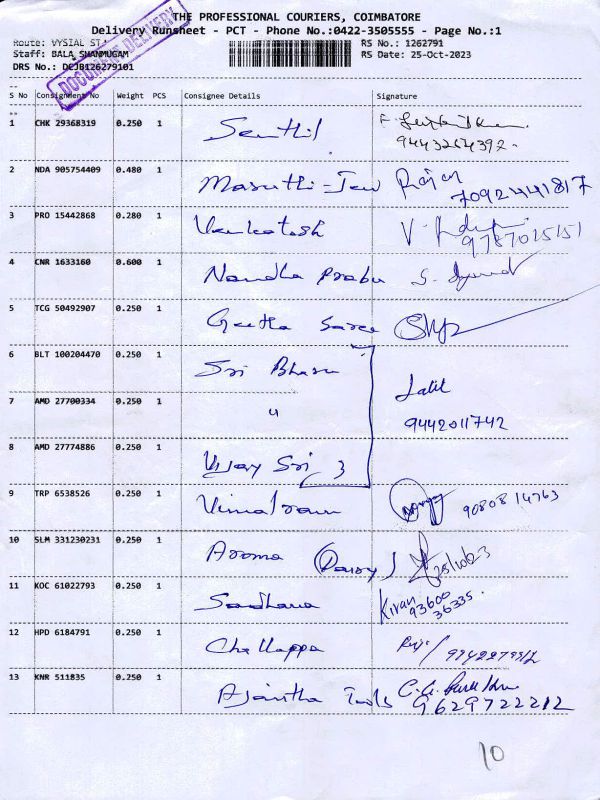 THE PROFESSIONAL COURIERS, COIMBATORE
Delivery Runsheet - PCT - Phone No.:0422-3505555 - Page No.:1
Route: VYSIAL ST
Staff: BALA SHANMUGAM
DRS No.: DCJB126279101
RS No.: 1262791
RS Date: 25-Oct-2023
DOCUMENT DELIVERY
S No Consignment No Weight PCS Consignee Details Signature
1 CHK 29368319 0.250 1 Senthil
9443264392.
2 NDA 905754409 0.480 1 Maruthi-Jew Rajan
7092441817
3 PRO 15442868 0.280 1 Venkatesh V.
9787025151
4 CNR 1633160 0.600 1 Nandha Prabu S.
5 TCG 50492907 0.250 1 Geetha Saree
6 BLT 100204470 0.250 1 Sri Bhasu
7 AMD 27700334 0.250 1 "
Lalit
9442011742
8 AMD 27774886 0.250 1 Vijay Sri 3
9 TRP 6538526 0.250 1 Vimalraam 9080814763
10 SLM 331230231 0.250 1 Aroma (Dairy) 25/10/23
11 KOC 61022793 0.250 1 Sandhana Kiran
93600
36335.
12 HPD 6184791 0.250 1 Chellappa
13 KNR 511835 0.250 1 Ajantha Tools
9629722212
10